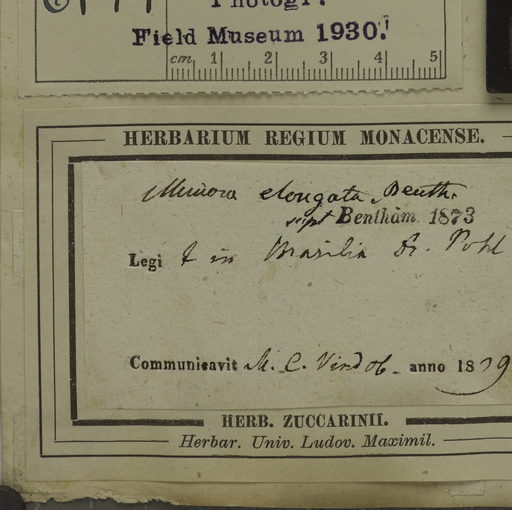 Photogr.
Field Museum 1930.
cm 1 2 3 4 5
HERBARIUM REGIUM MONACENSE.
elongata Benth.
script Bentham. 1873
Legi t in Brasilia Dr. Pohl
Communicavit M. C. Vindob. anno 1839
HERB. ZUCCARINII.
Herbar. Univ. Ludov. Maximil.